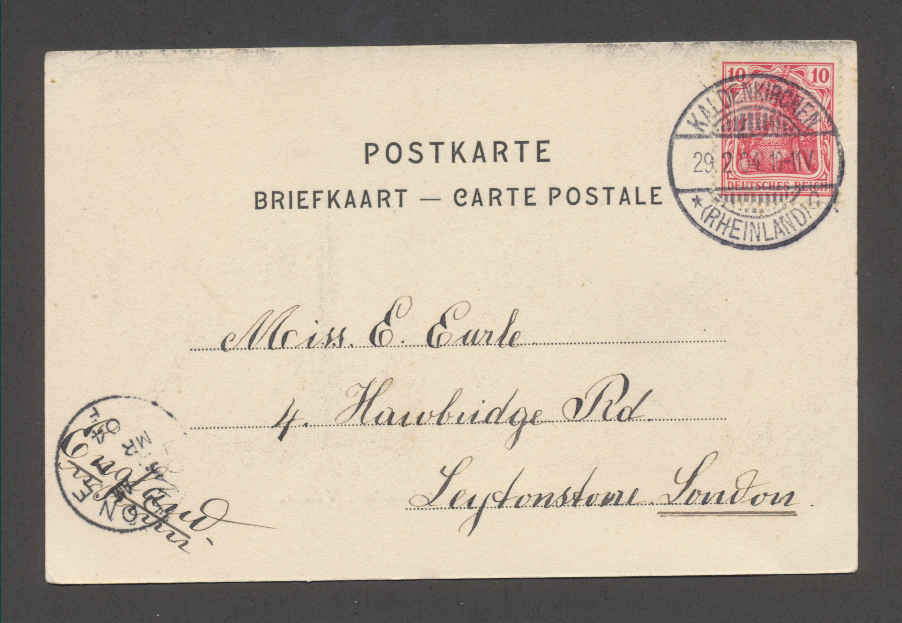 10 10
KALDENKIRCHEN
29.2.04.10-11V.
DEUTSCHES REICH
* (RHEINLAND)
POSTKARTE
BRIEFKAART — CARTE POSTALE
Miss. E. Earle
4. Hawbridge Rd.
Leytonstone. London.
England
MR
04
ONE